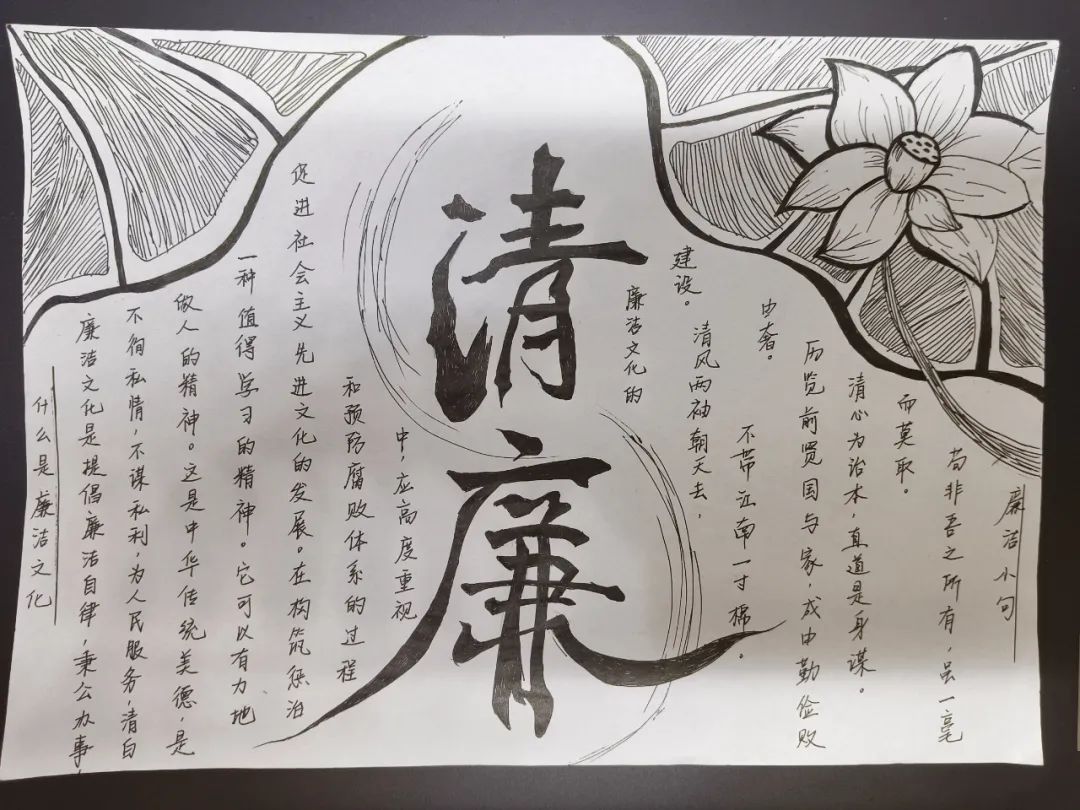 清廉
什么是廉洁文化
廉洁文化是提倡廉洁自律，秉公办事，
不徇私情，不谋私利，为人民服务，清白
做人的精神。这是中华传统美德，是
一种值得学习的精神。它可以有力地
促进社会主义先进文化的发展。在构筑惩治
和预防腐败体系的过程
中，应高度重视
廉洁文化的
建设。
廉洁小句
苟非吾之所有，虽一毫
而莫取。
清心为治本，直道是身谋。
历览前贤国与家，成由勤俭败
由奢。
清风两袖朝天去，
不带江南一寸棉。